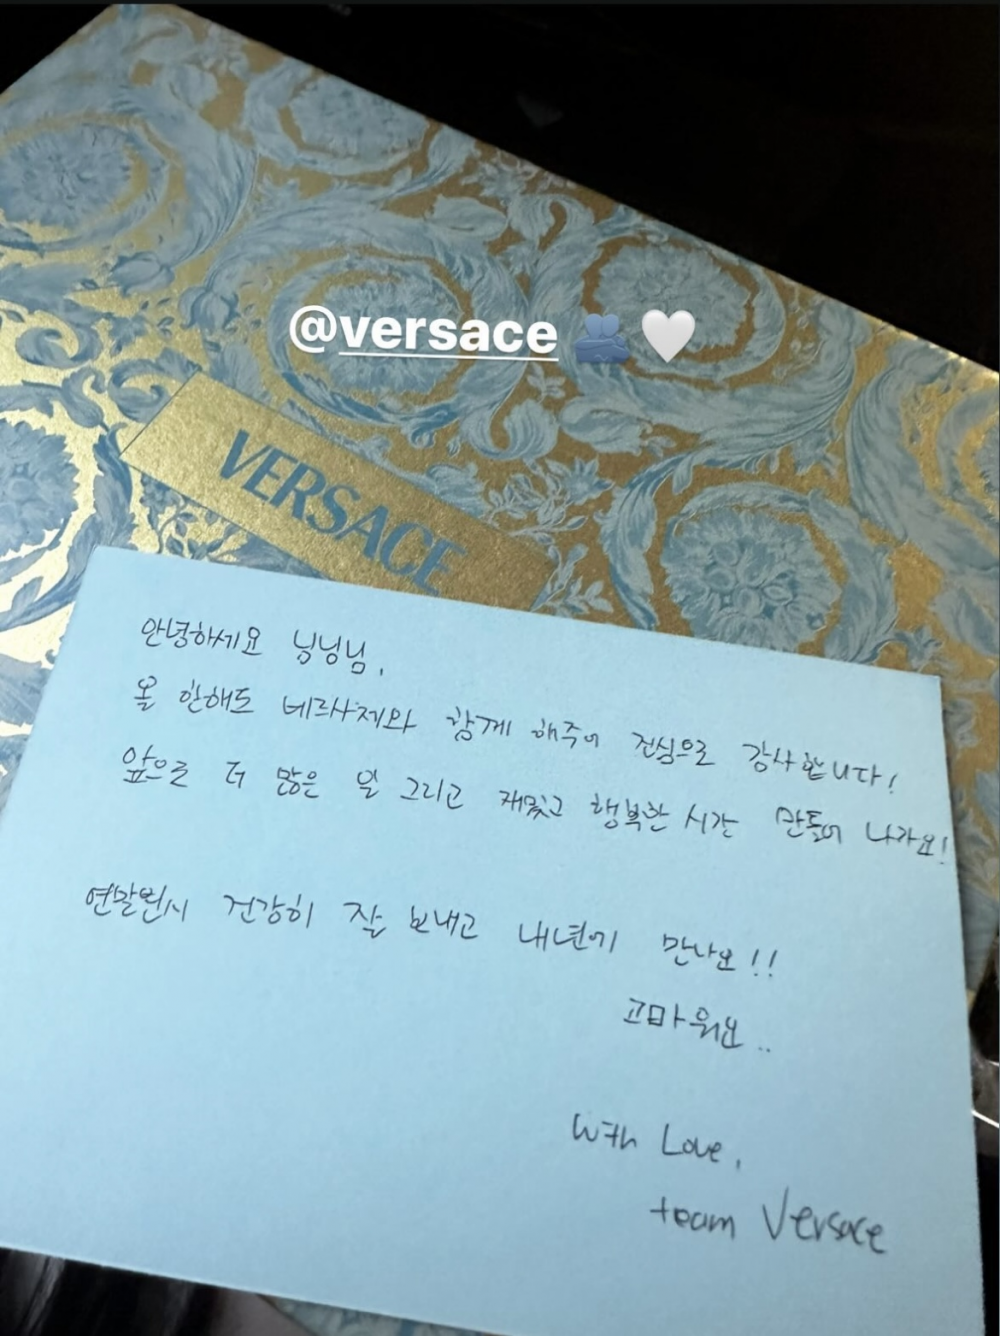 @versace 🫂🤍
VERSACE
안녕하세요 닝닝님,
올 한해도 베르사체와 함께 해주어 진심으로 감사합니다!
앞으로 더 많은 일 그리고 재밌고 행복한 시간 만들어 나가요!
연말연시 건강히 잘 보내고 내년에 만나요!!
고마워요..
With Love,
team Versace